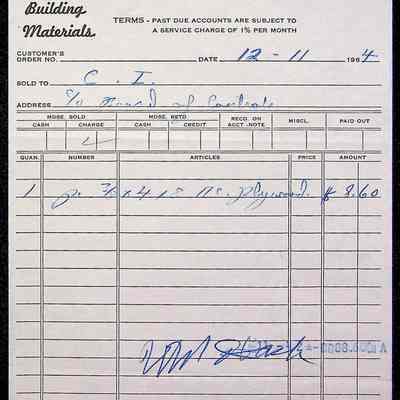 Building
Materials.
TERMS - PAST DUE ACCOUNTS ARE SUBJECT TO
A SERVICE CHARGE OF 1% PER MONTH
CUSTOMER'S
ORDER NO. DATE 12-11 1964
SOLD TO C. I.
ADDRESS c/o Board of Control
MDSE. SOLD MDSE. RETD. REC'D. ON ACCT.-NOTE MISCL. PAID OUT
CASH CHARGE CASH CREDIT
QUAN. NUMBER ARTICLES PRICE AMOUNT
1 pc. 3/4 x 4 x 8 Plywood. $ 8.60